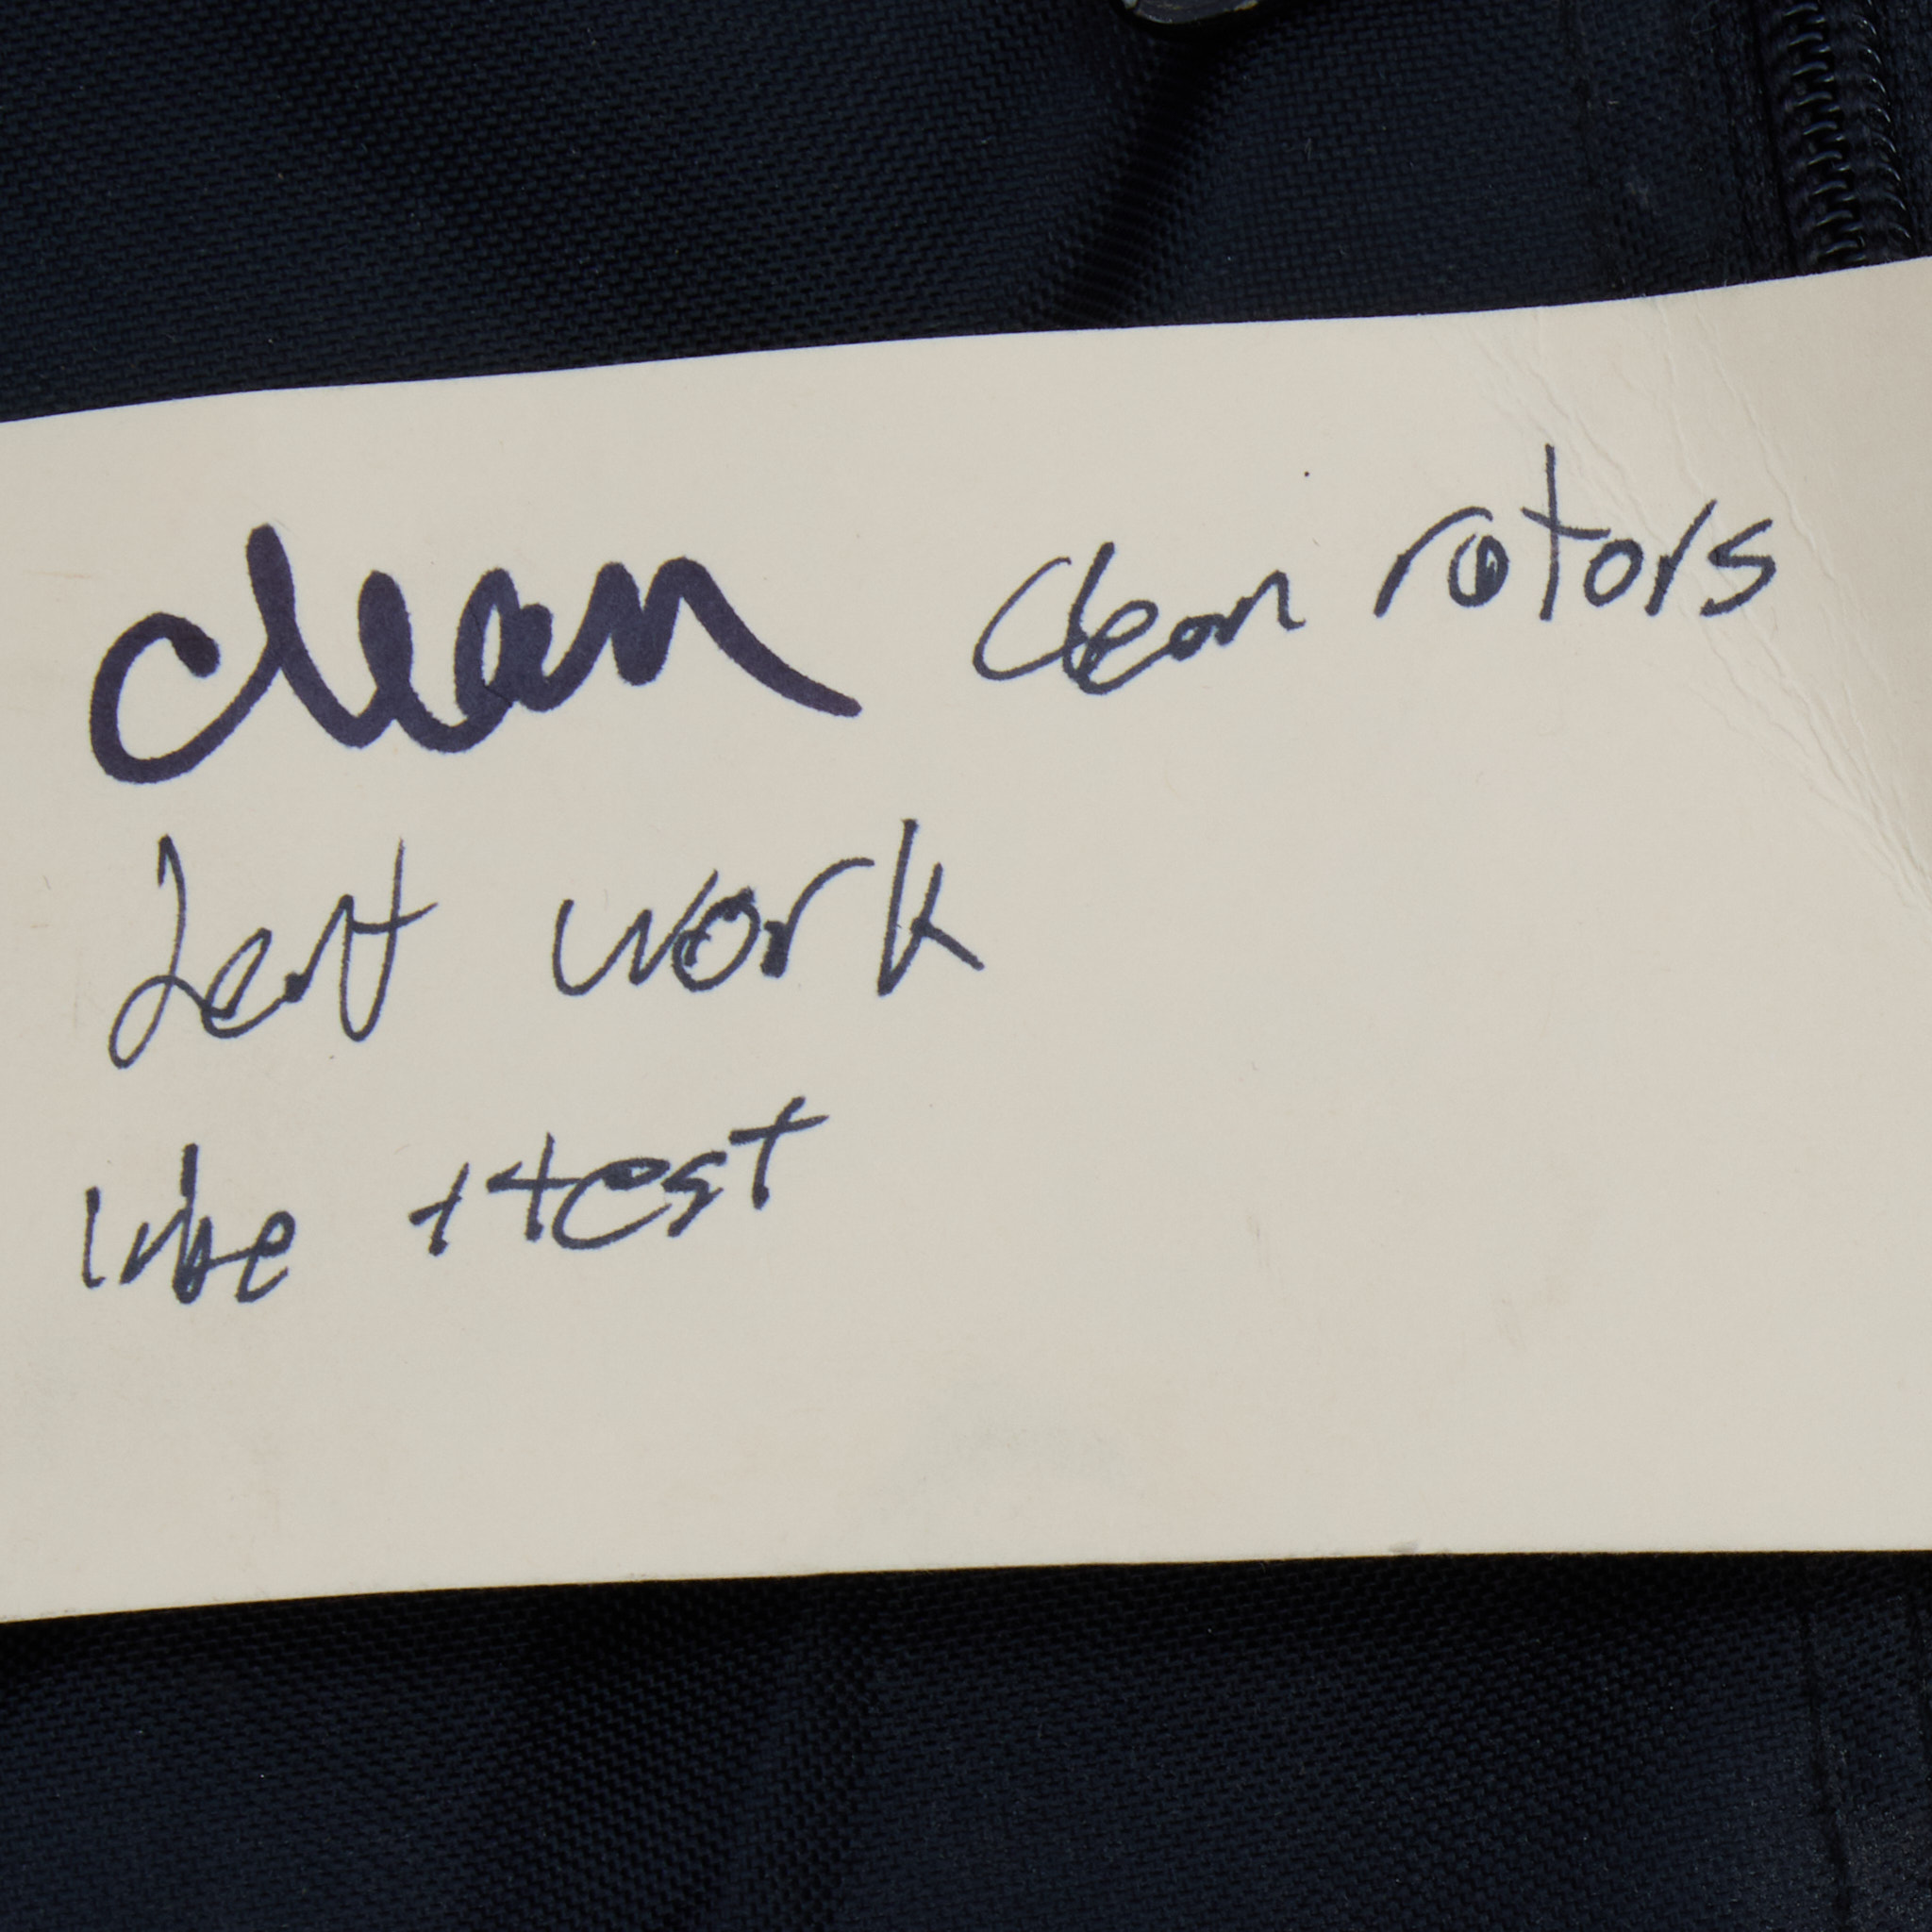 clean clean rotors
dent work
lube + test